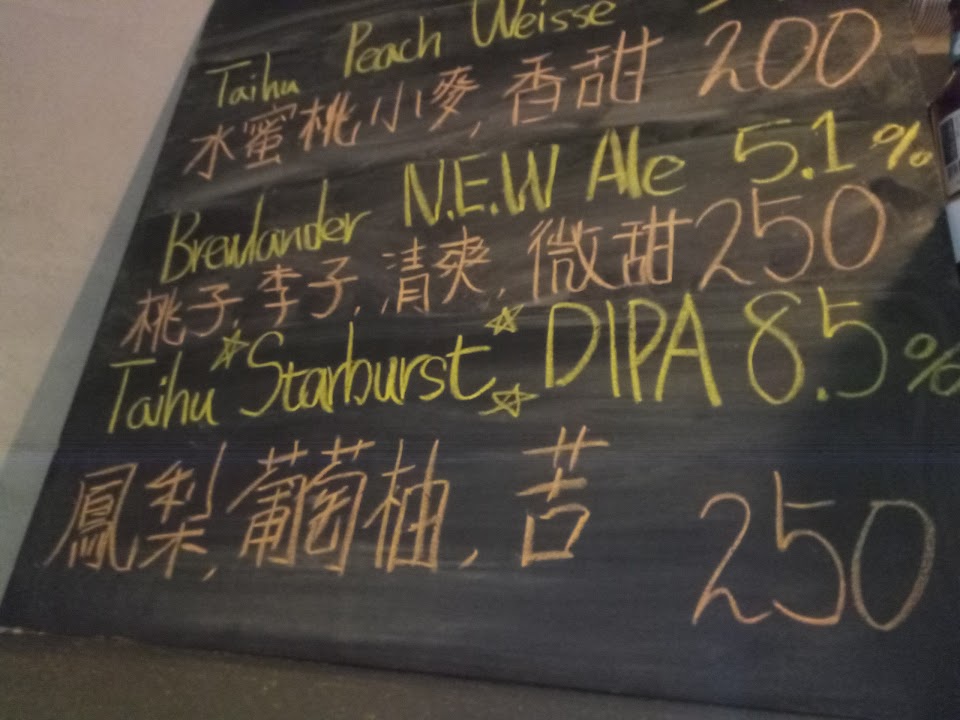 Taihu Peach Weisse
水蜜桃小麥, 香甜 200
Brewlander N.E.W Ale 5.1%
桃子, 李子, 清爽, 微甜 250
Taihu ☆Starburst☆☆ DIPA 8.5%
鳳梨, 葡萄柚, 苦 250